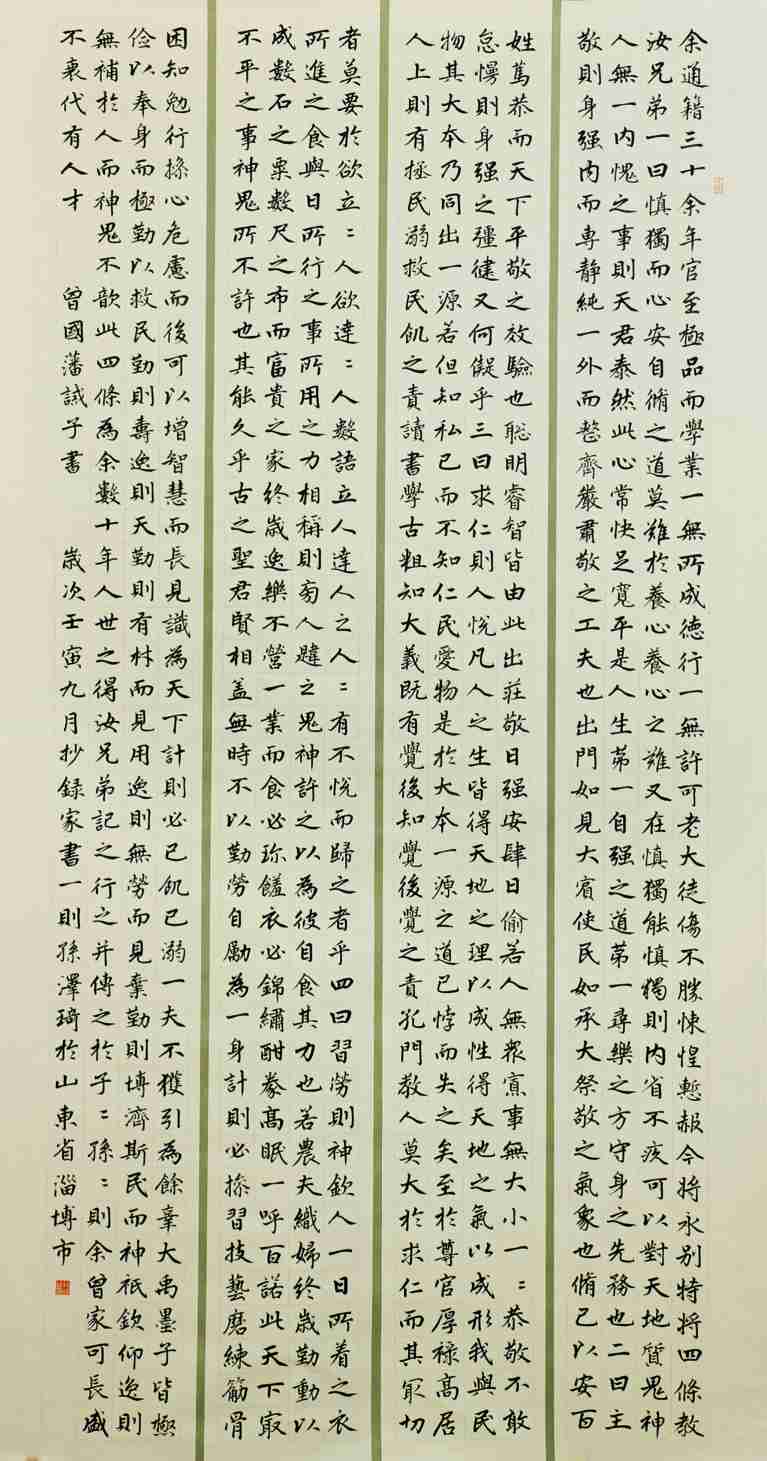 余通籍三十余年官至極品而學業一無所成德行一無許可老大徒傷不勝悚惶慙赧今將永別特將四條教
汝兄弟一曰慎獨而心安自脩之道莫難於養心養心之難又在慎獨能慎獨則內省不疚可以對天地質鬼神
人無一內愧之事則天君泰然此心常快足寬平是人生第一自强之道第一尋樂之方守身之先務也二曰主
敬則身强內而專静純一外而整齊嚴肅敬之工夫也出門如見大賓使民如承大祭敬之氣象也脩己以安百
姓篤恭而天下平敬之效驗也聡明睿智皆由此出莊敬日强安肆日偷若人無衆寡事無大小一〻恭敬不敢
怠慢則身强之彊健又何儗乎三曰求仁則人悅凡人之生皆得天地之理以成性得天地之氣以成形我與民
物其大本乃同出一源若但知私己而不知仁民愛物是於大本一源之道已悖而失之矣至於尊官厚祿高居
人上則有拯民溺救民飢之責讀書學古粗知大義既有覺後知覺後覺之責孔門教人莫大於求仁而其冣切
者莫要於欲立〻人欲達〻人數語立人達人之人〻有不悅而歸之者乎四曰習勞則神欽人一日所着之衣
所進之食與日所行之事所用之力相稱則旁人韙之鬼神許之以為彼自食其力也若農夫織婦終歲勤動以
成數石之粟數尺之布而富貴之家終歲逸樂不營一業而食必珍饈衣必錦繡酣豢高眠一呼百諾此天下冣
不平之事神鬼所不許也其能久乎古之聖君賢相蓋無時不以勤勞自勵為一身計則必操習技藝磨練筋骨
困知勉行操心危慮而後可以增智慧而長見識為天下計則必已飢已溺一夫不獲引為餘辜大禹墨子皆極
儉以奉身而極勤以救民勤則壽逸則夭勤則有材而見用逸則無勞而見棄勤則博濟斯民而神祇欽仰逸則
無補於人而神鬼不歆此四條為余數十年人世之得汝兄弟記之行之并傳之於子〻孫〻則余曾家可長盛
不衰代有人才 曾國藩誡子書 歲次壬寅九月抄録家書一則孫澤琦於山東省淄博市